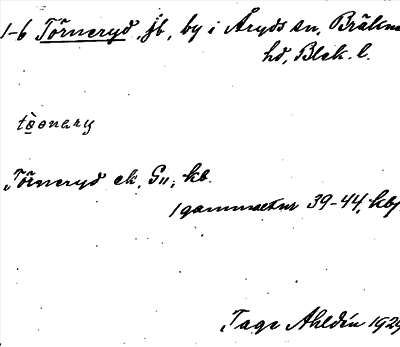 1-6 Törneryd, jb, by i Åryds sn, Bräkne
hd, Blek. l.
tö̀ɷnary
Törneryd ek. Gu; kb.
1 gammaltnr 39-44, kbf
Tage Ahldén 1929